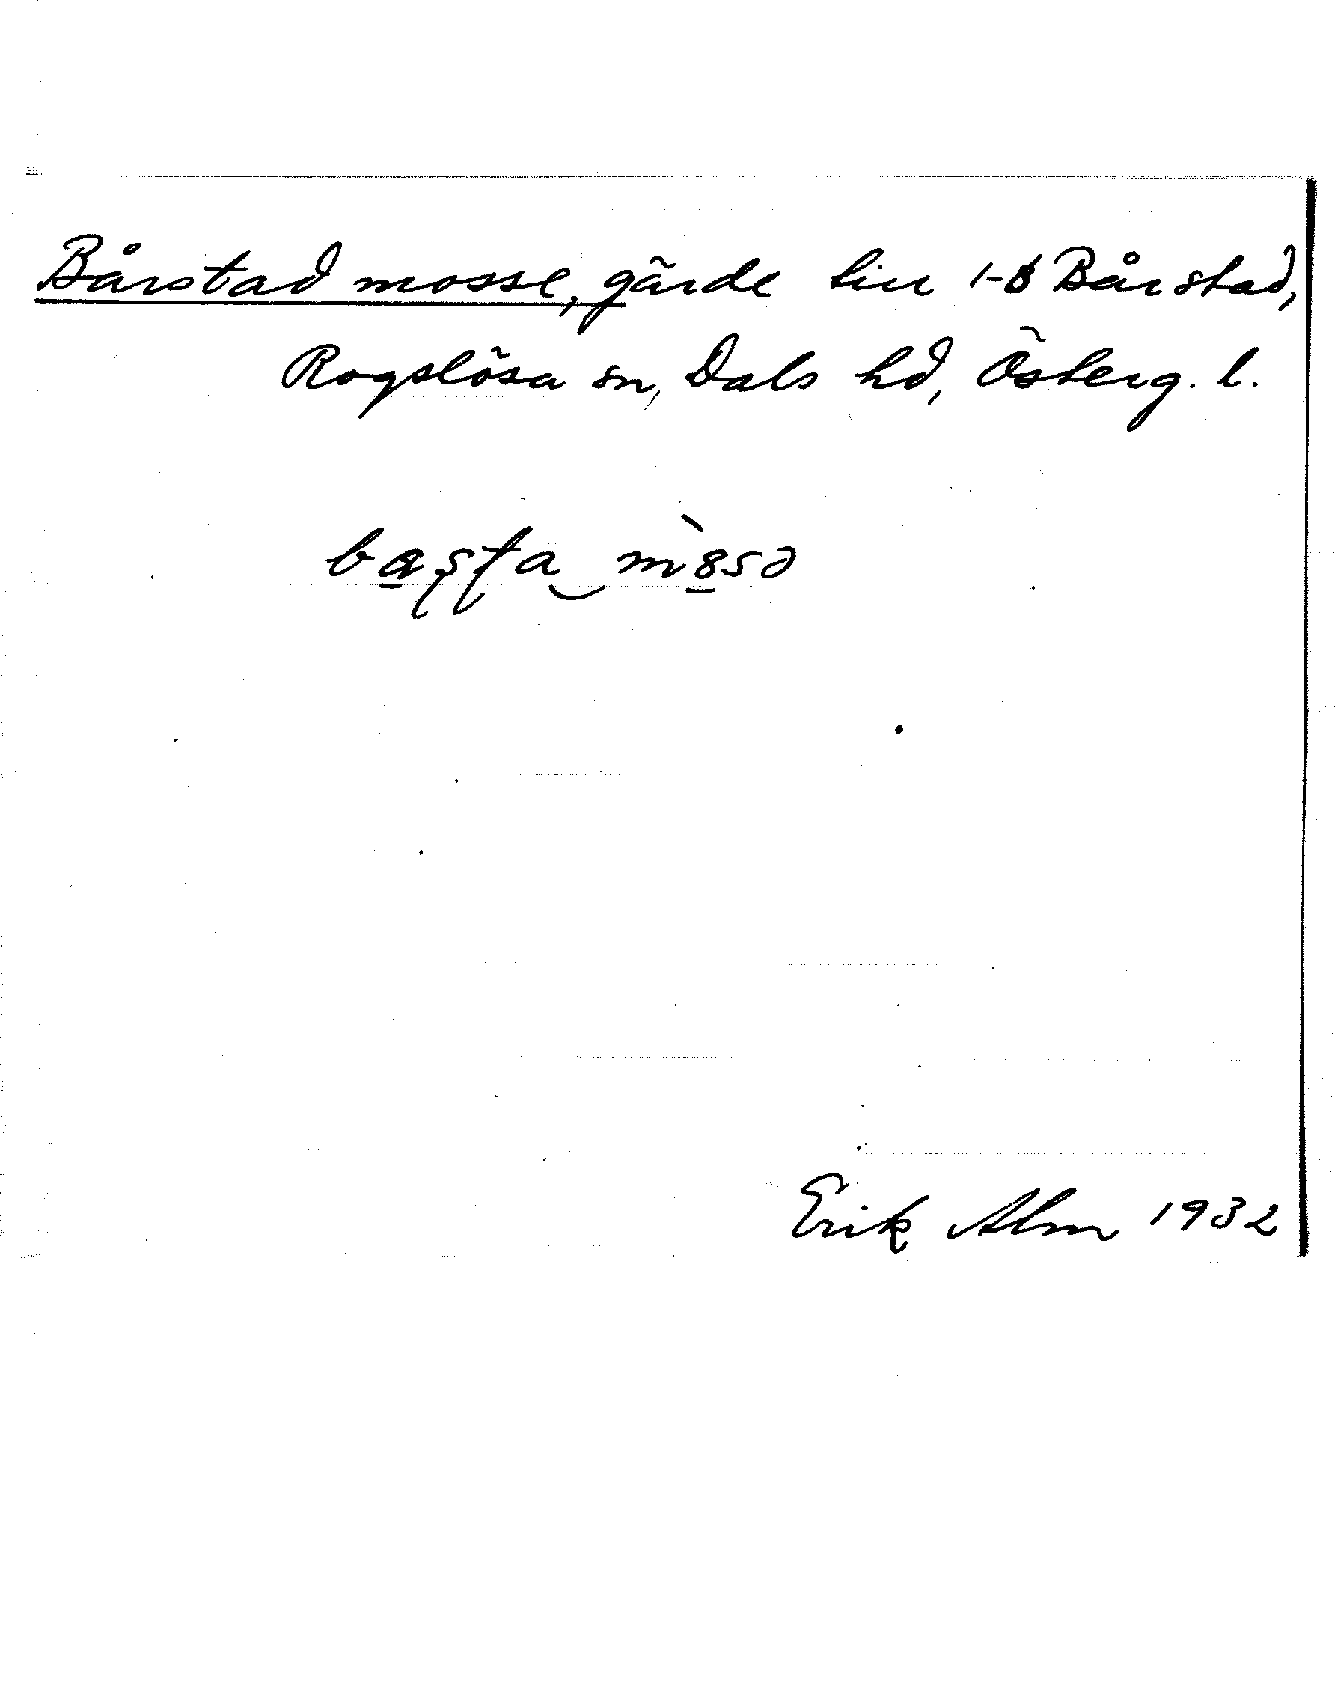 Bårstad mosse, gärde till 1-8 Bårstad,
Rogslösa sn, Dals hd, Österg. l.
Erik Alm 1932